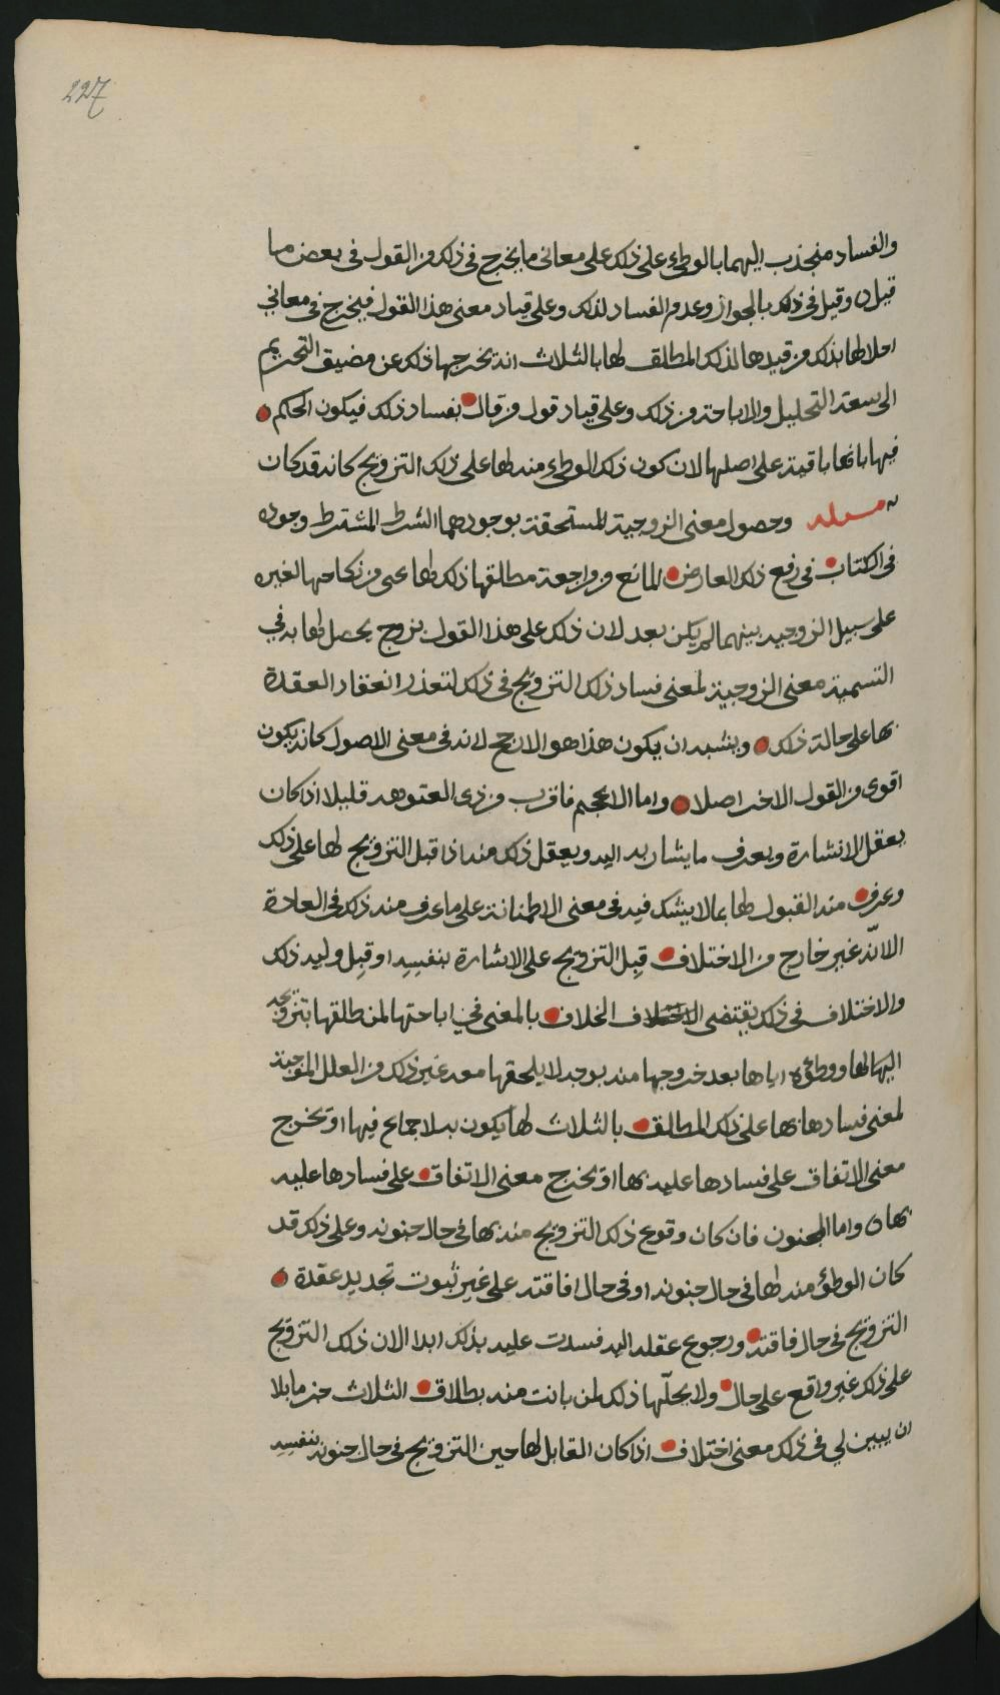 227
والفساد منجذب اليهما بالوطئ على ذلك على معانى ما يخرج فى ذلك من القول فى بعض ما
قيل ن وقيل فى ذلك بالجواز وعدم الفساد لذلك وعلى قياد معنى هذا القول فيخرج فى معاني
احلالها بذلك من قيدها لذلك المطالق لها بالثلاث انه يخرجها ذلك عن مضيق التحريم
الى سعة التحليل والاباحة من ذلك وعلى قياد قول من قال بفساد ذلك فيكون الحكم
فيها بانها باقية على اصلها لان كون ذلك الوطئ منه لها على ذلك التزويج كانه قد كان
مسئله وحصول معنى الزوجية المستحقة بوجودهما الشرط المشترط وجوده
فى الكتاب فى رفع ذلك العارض المانع من مراجعة مطالقها ذلك لها عن نكاحها لغيره
على سبيل الزوجيه بينهما لم يكن بعد لان ذلك على هذا القول بزوج يحصل لها به في
التسمية معنى الزوجية لمعنى فساد ذلك التزويج فى ذلك لتعذر انعقاد العقدة
بها على حالة ذلك ويشبه ان يكون هذا هو الارجح لانه فى معنى الاصول كانه يكون
اقوى من القول الاخر اصلا واما الاعجم فاقرب من ذى العتوهه قليلا اذا كان
يعقل الاشارة ويعرف ما يشار به اليه ويعقل ذلك منه اذا قبل التزويج لها على ذلك
وعرف منه القبول لها بما لا يشك فيه فى معنى الاطمنانة على ما عرف منه ذلك فى العادة
الا انّه غير خارج من الاختلاف قبل التزويج على الاشارة بنفسه او قبل وليه ذلك
والاختلاف فى ذلك يقتضى الخلاف بالمعنى في اباحتها لمن طالقها بتزويجه
اليها لها ووطؤه اياها بعد خروجها منه بوجه لا يلحقها معه غير ذلك من العلل الموجبة
لمعنى فسادها بها على ذلك المطالق بالثلاث لها يكون بالاجماع فيها او يخرج
معنى الاتفاق على فسادها عليه بها او يخرج معنى الاتفاق على فسادها عليه
بها ن واما المجنون فان كان وقوع ذلك التزويج منه بها فى حال جنونه وعلى ذلك قد
كان الوطؤ منه لها فى حال جنونه او فى حال افاقته على غير ثبوت تجديد عقدة
التزويج فى حال فاقته ورجوع عقله اليه فسدت عليه بذلك ابدا لان ذلك التزويج
على ذلك غير واقع على حال ولا يحلّها ذلك لمن بانت منه بطلاق الثلاث جزما بلا
ان يبين لي فى ذلك معنى اختلاف اذا كان القابل لها حين التزويج فى حال جنونه بنفسه